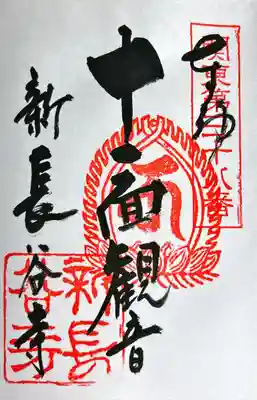 奉拝
関東第三十八番
十一面観音
新長谷寺
新長
谷寺